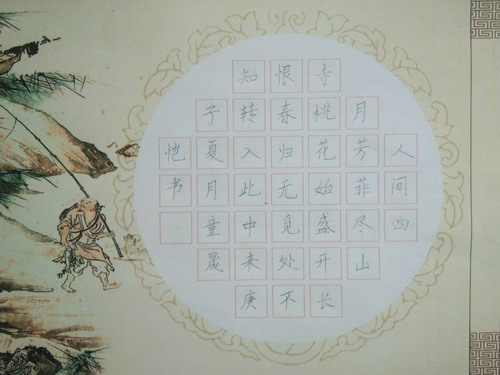 人间四
月芳菲尽山
寺桃花始盛开长
恨春归无觅处不
知转入此中来庚
子夏月童晟
恺书